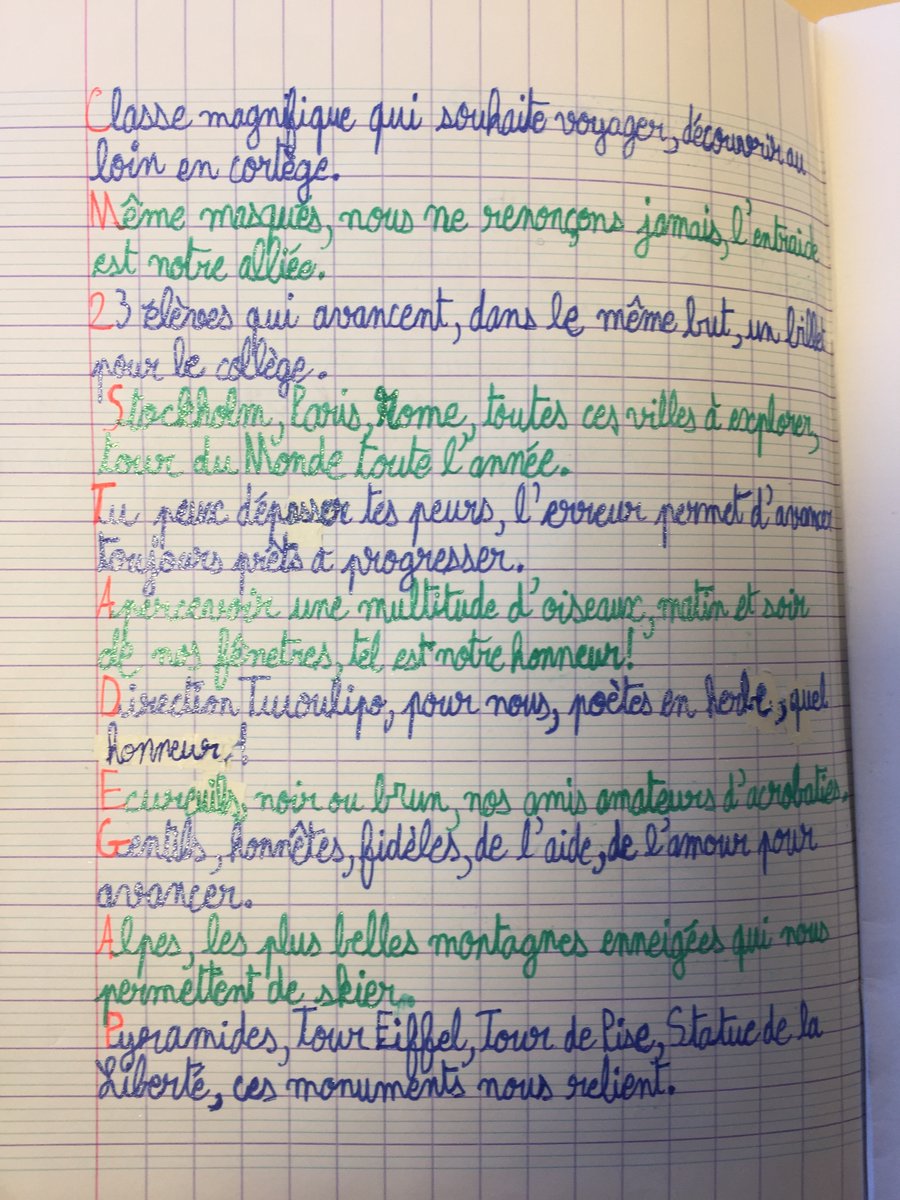 Classe magnifique qui souhaite voyager, découvrir au
loin en cortège.
Même masqués, nous ne renonçons jamais, l'entraide
est notre alliée.
23 élèves qui avancent, dans le même but, un billet
pour le collège.
Stockholm, Paris, Rome, toutes ces villes à explorer,
tour du Monde toute l'année.
Tu peux dépasser tes peurs, l'erreur permet d'avancer
toujours prêts à progresser.
Apercevoir une multitude d'oiseaux, matin et soir
de nos fenêtres, tel est notre honneur!
Direction Twoulipo, pour nous, poètes en herbe, quel
honneur!
Ecureuils, noir ou brun, nos amis amateurs d'acrobaties.
Gentils, honnêtes, fidèles, de l'aide, de l'amour pour
avancer.
Alpes, les plus belles montagnes enneigées qui nous
permettent de skier.
Pyramides, Tour Eiffel, Tour de Pise, Statue de la
Liberté, ces monuments nous relient.